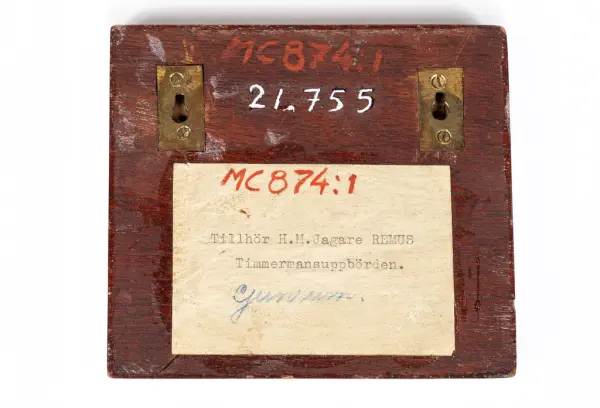 MC874:1
21.755
MC874:1
Tillhör H.M.Jagare REMUS
Timmermansuppbörden.